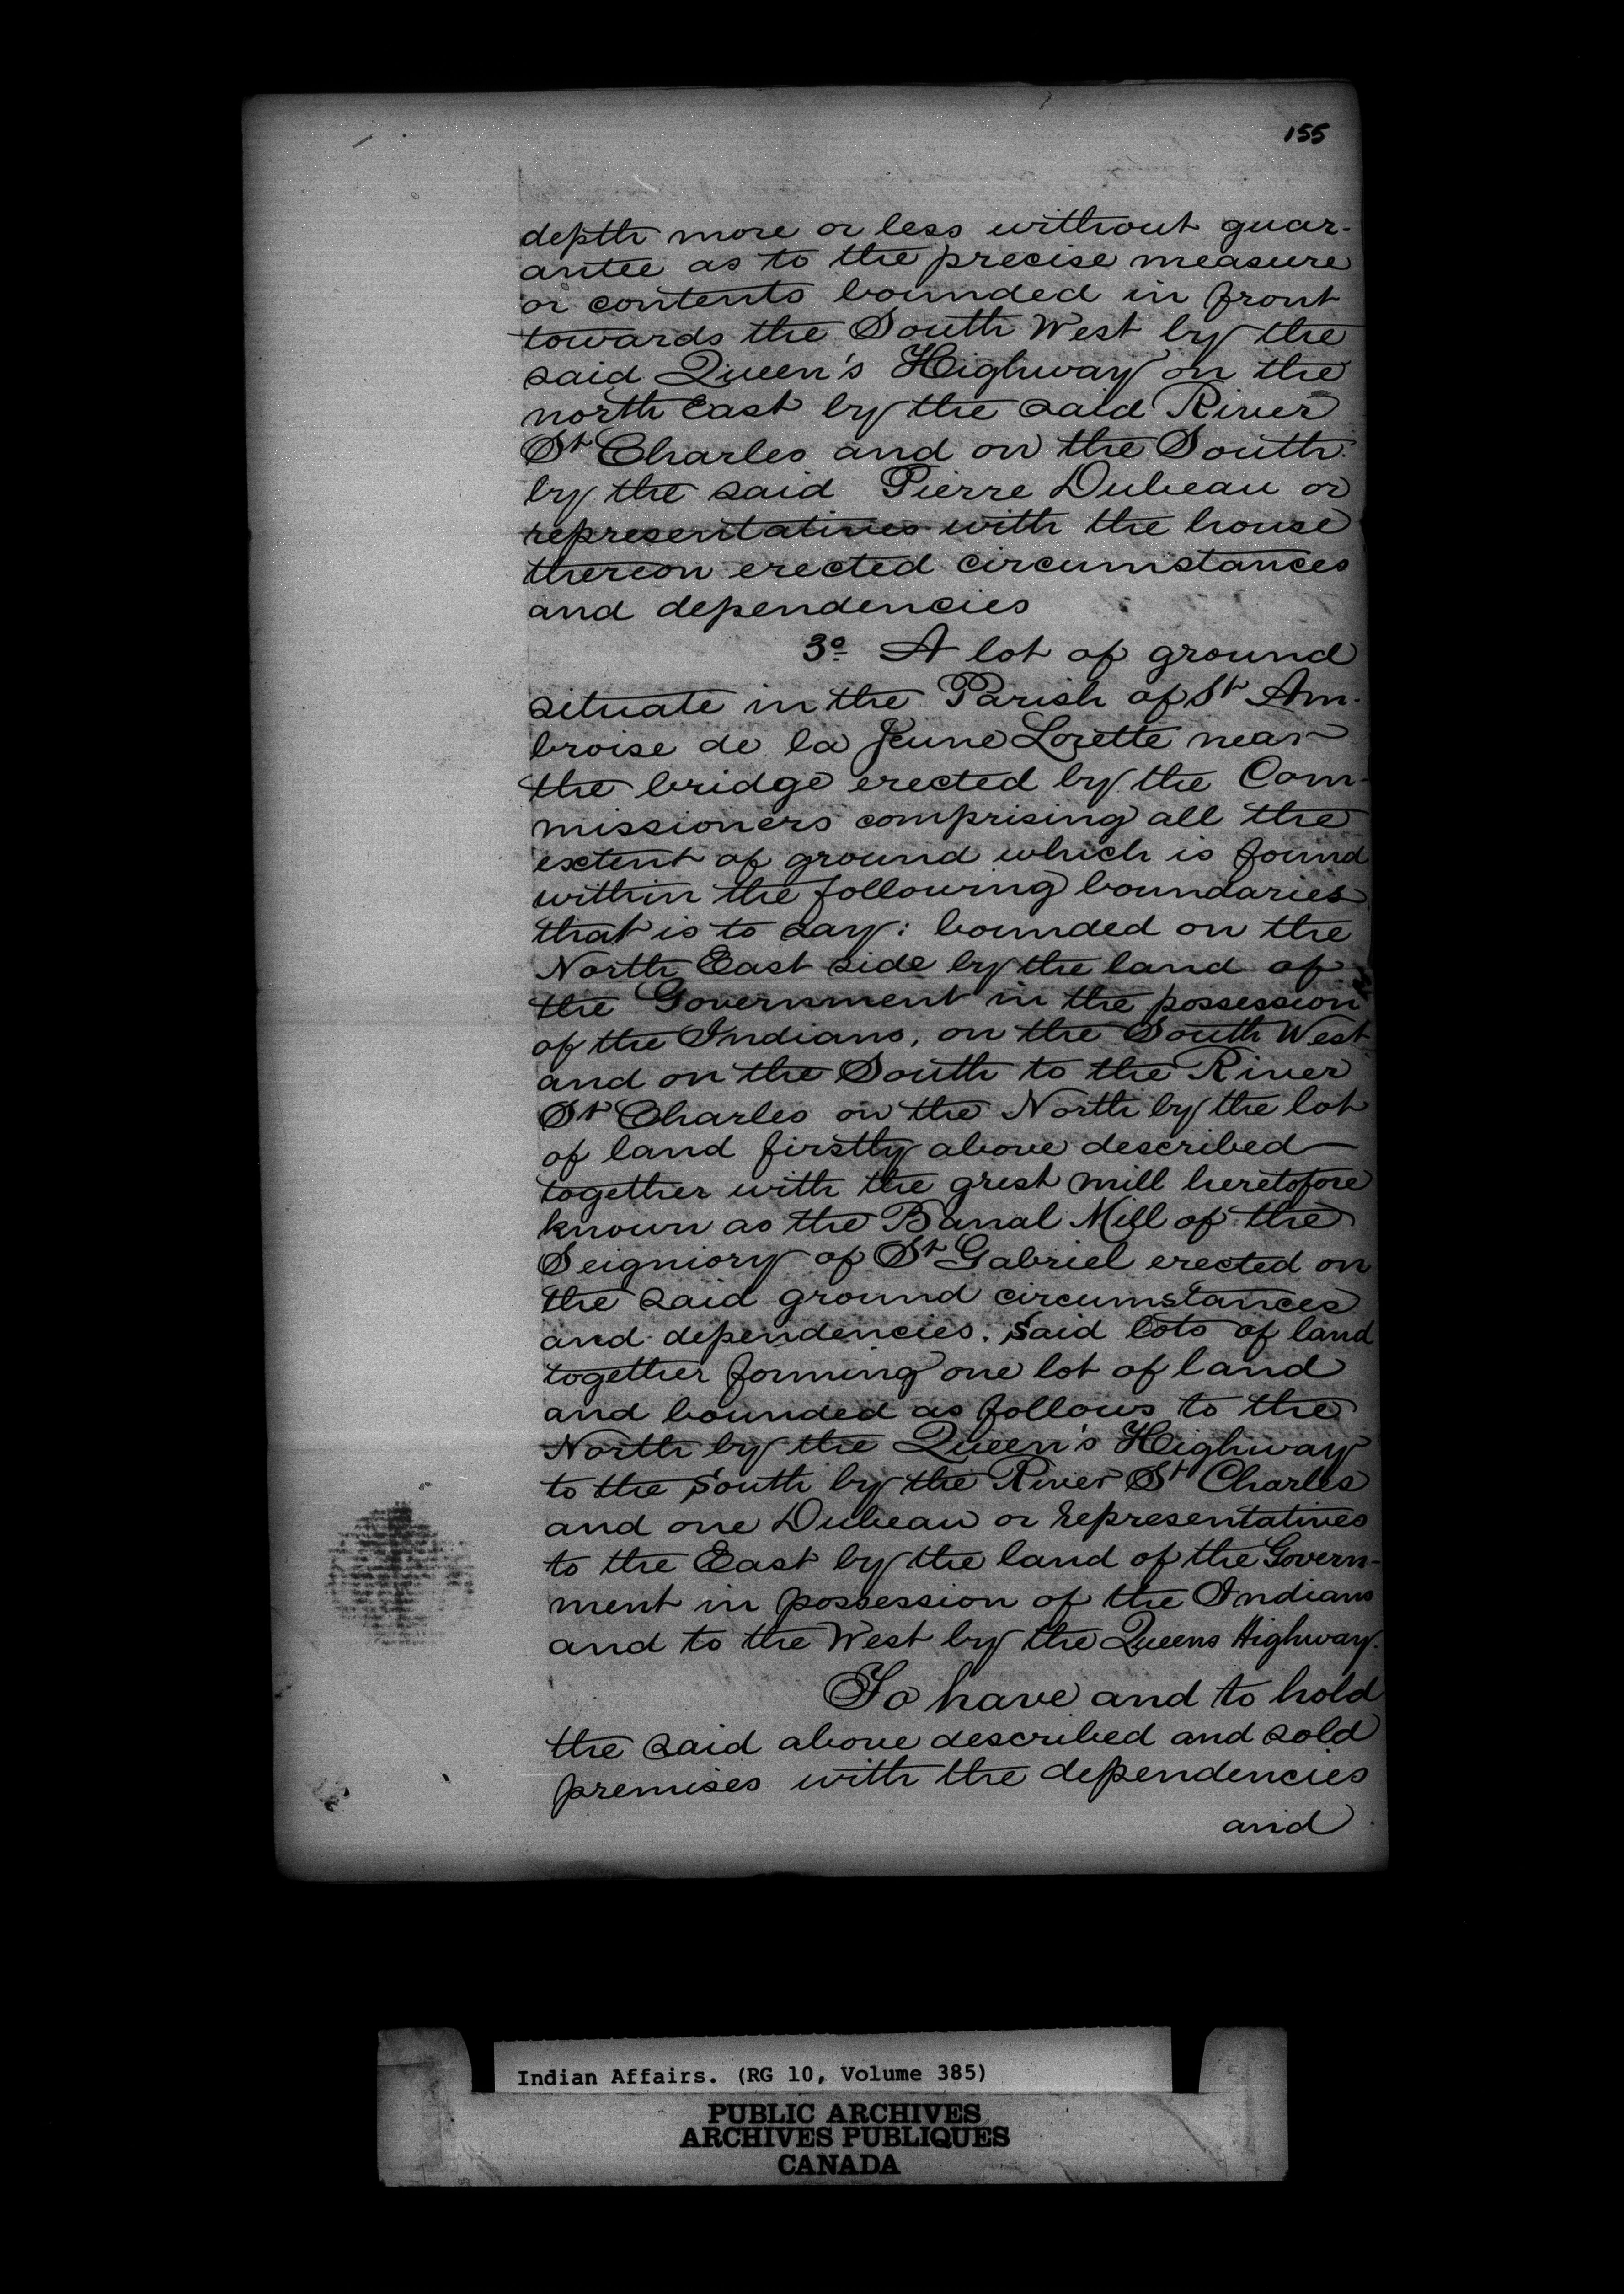 155
depth more or less without guar-
antee as to the precise measure
or contents bounded in front
towards the South West by the
said Queen's Highway on the
north East by the said River
St Charles and on the South
by the said Pierre Dubeau or
representatives with the house
thereon erected circumstances
and dependencies
3o A lot of ground
situate in the Parish of St Am-
broise de la Jeune Lorette near
the bridge erected by the Com-
missioners comprising all the
extent of ground which is found
within the following boundaries
that is to say: bounded on the
North East side by the land of
the Government in the possession
of the Indians, on the South West
and on the South to the River
St Charles on the North by the lot
of land firstly above described
together with the grist mill heretofore
known as the Banal Mill of the
Seigniory of St Gabriel erected on
the said ground circumstances
and dependencies. Said lots of land
together forming one lot of land
and bounded as follows to the
North by the Queen's Highway
to the South by the River St Charles
and one Dubeau or representatives
to the East by the land of the Govern-
ment in possession of the Indians
and to the West by the Queens Highway.
To have and to hold
the said above described and sold
premises with the dependencies
and
Indian Affairs. (RG 10, Volume 385)
PUBLIC ARCHIVES
ARCHIVES PUBLIQUES
CANADA